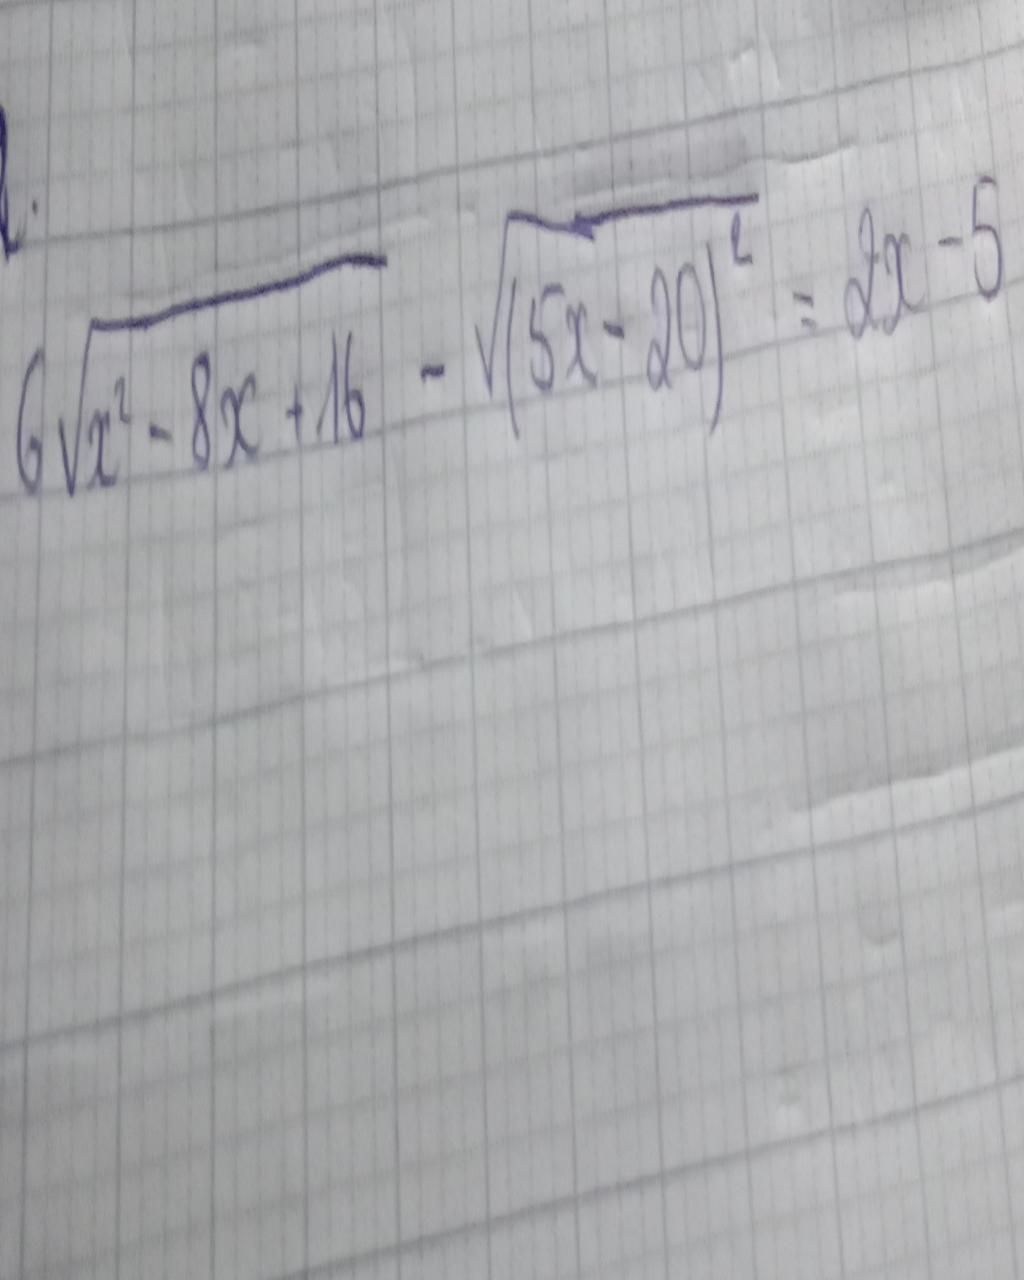 6√(x² - 8x + 16) - √((5x - 20)²) = 2x - 5